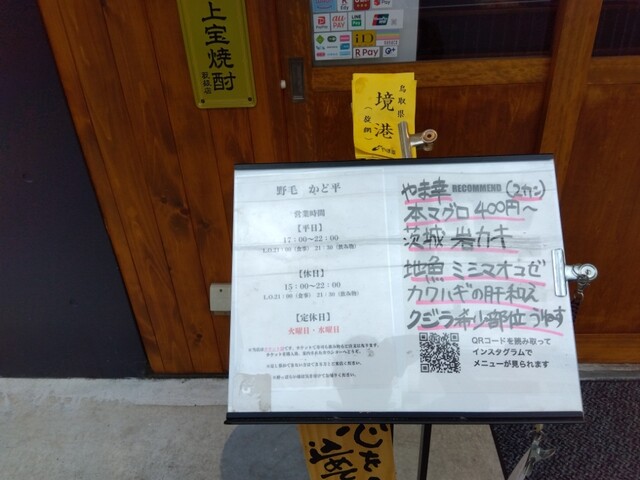 上宝焼酎
au PAY
LINE Pay
iD
R Pay
鳥取県
境港
野毛 かど平
営業時間
【平日】
17:00〜22:00
L.O.21:00(食事) 21:30(飲み物)
【休日】
15:00〜22:00
L.O.21:00(食事) 21:30(飲み物)
【定休日】
火曜日・水曜日
やま幸 RECOMMEND (2カン)
本マグロ 400円〜
茨城 岩カキ
地魚 ミシマオコゼ
カワハギの肝和え
クジラ希少部位 うねす
QRコードを読み取って
インスタグラムで
メニューが見られます